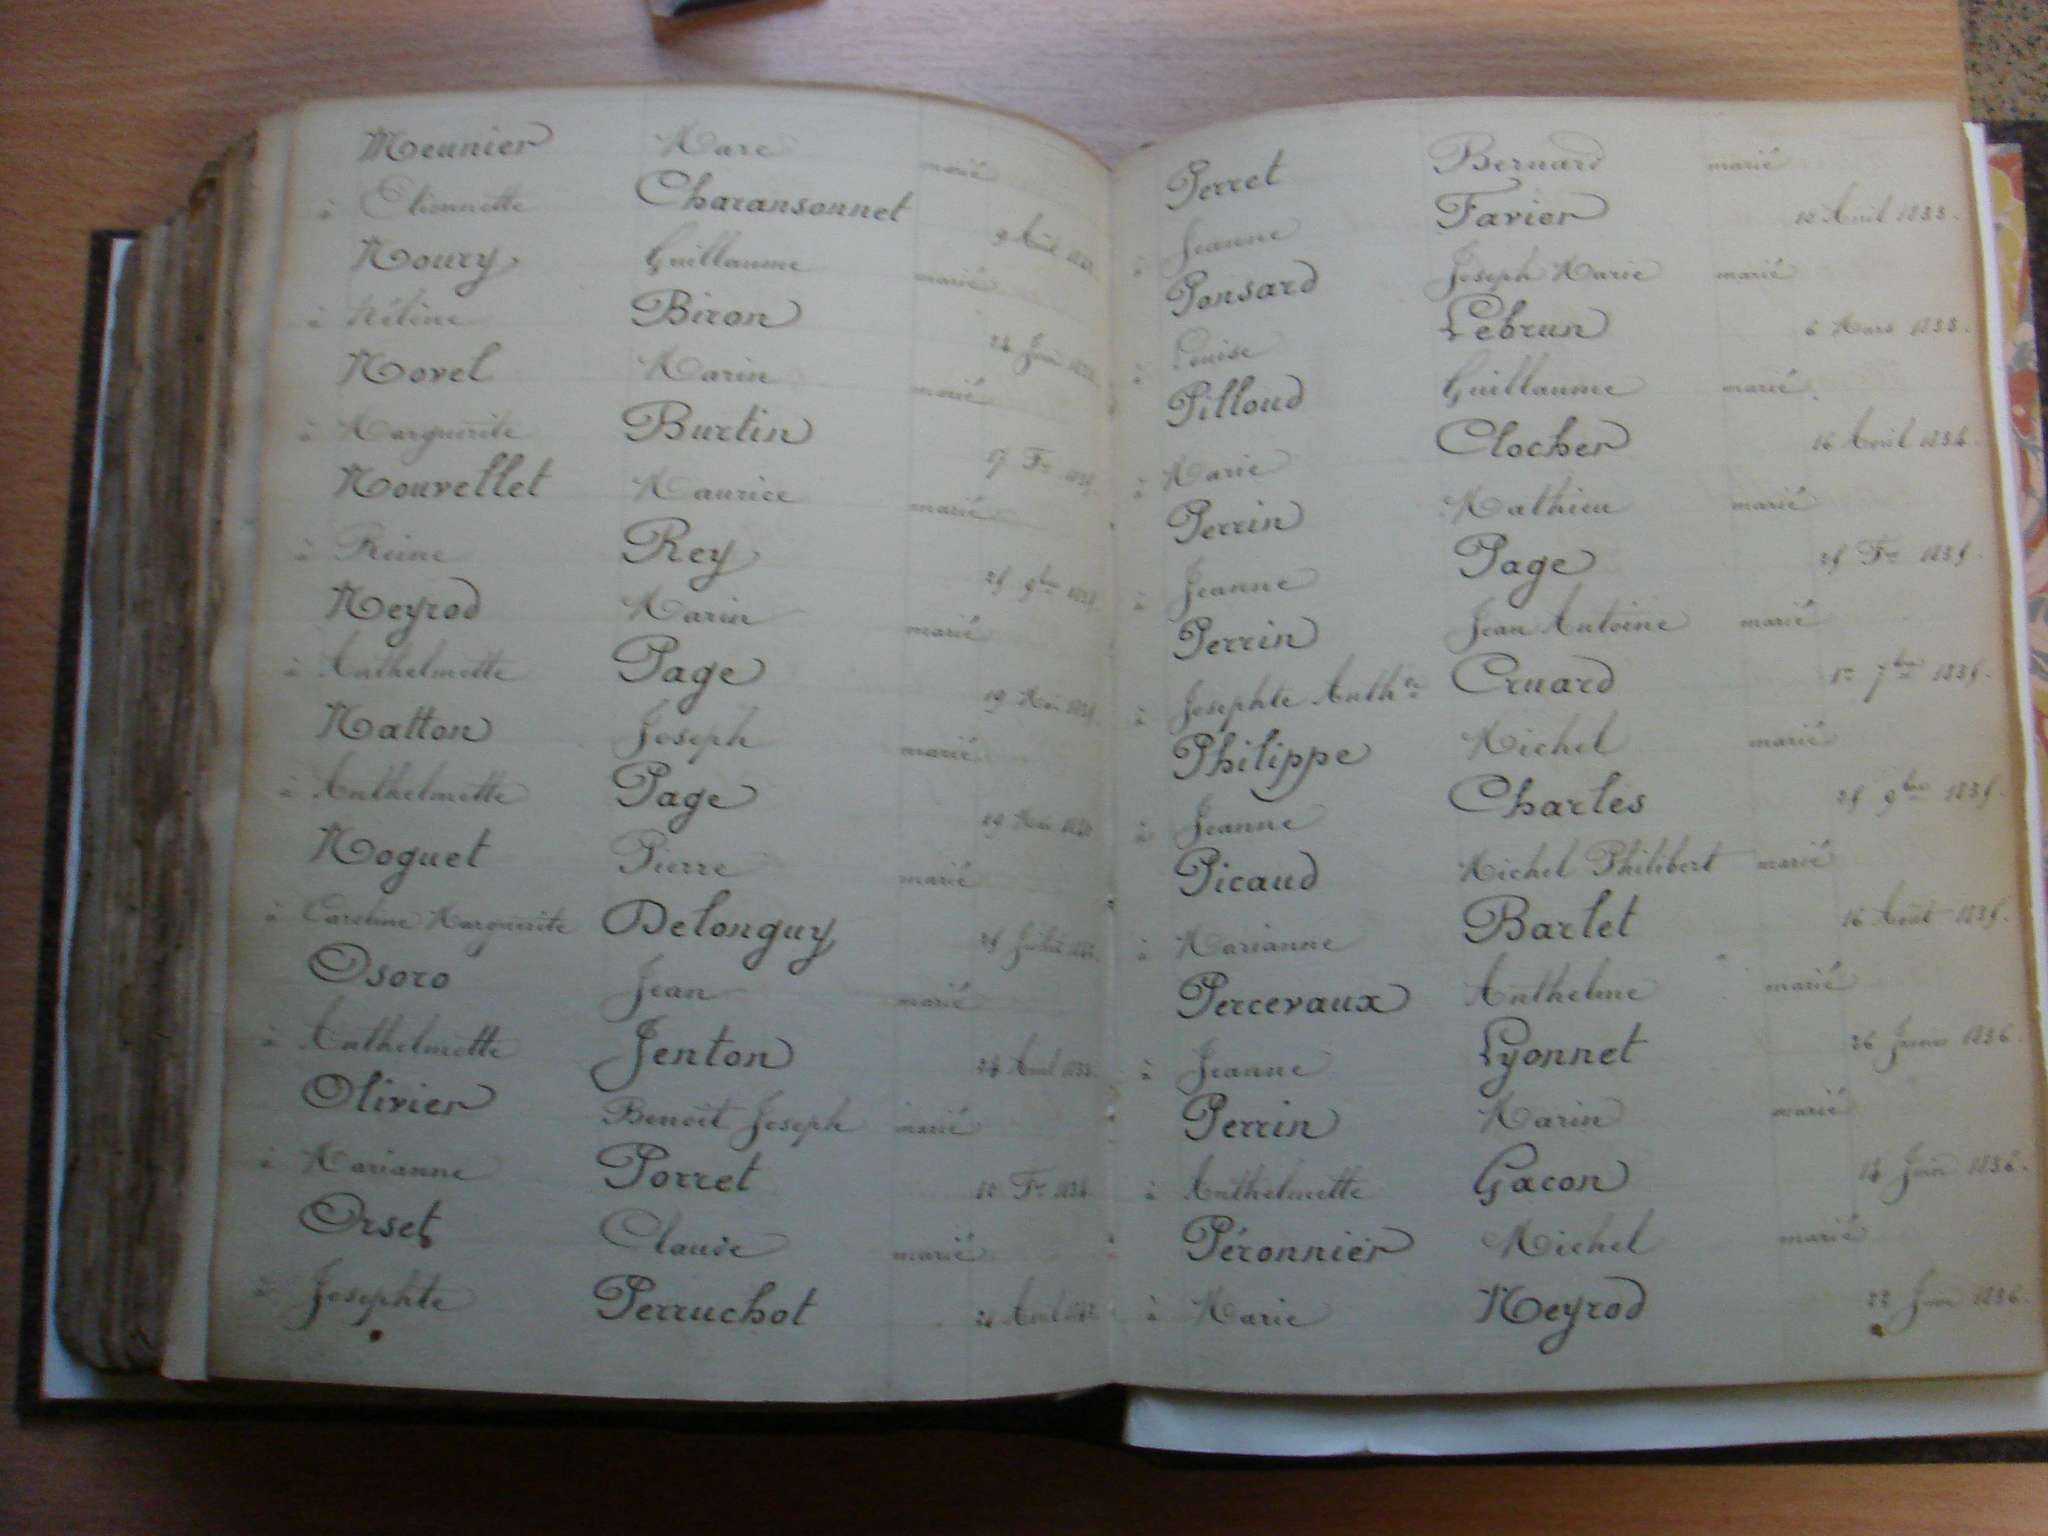 Meunier Marc marié
à Etiennette Charansonnet 9 Avril
Noury Guillaume marié
à Hélène Biron
Novel Marin marié
à Marguerite Burtin 17 Fr
Nouvellet Maurice marié
à Reine Rey 25 9bre
Neyrod Marin marié
à Anthelmette Page 19 Mai
Natton Joseph marié
à Anthelmette Page 19 Mai
Noguet Pierre marié
à Caroline Marguerite Delonguy 25 Juillet
Osoro Jean marié
à Anthelmette Jenton 24 Avril
Olivier Benoît Joseph marié
à Marianne Porret 10 Fr
Orset Claude marié
à Josephte Perruchot 21 Avril
Perret Bernard marié
à Jeanne Favier 10 Avril 1833.
Ponsard Joseph Marie marié
à Louise Lebrun 6 Mars 1833.
Pilloud Guillaume marié
à Marie Clocher 16 Avril 1834.
Perrin Mathieu marié
à Jeanne Page 25 Fr 1835.
Perrin Jean Antoine marié
à Josephte Anth.te Cruard 1er 7bre 1835.
Philippe Michel marié
à Jeanne Charles 25 9bre 1835.
Picaud Michel Philibert marié
à Marianne Barlet 16 Août 1835.
Percevaux Anthelme marié
à Jeanne Lyonnet 26 Janvier 1836.
Perrin Marin marié
à Anthelmette Gacon 14 Juin 1836.
Péronnier Michel marié
à Marie Neyrod 22 Juin 1836.